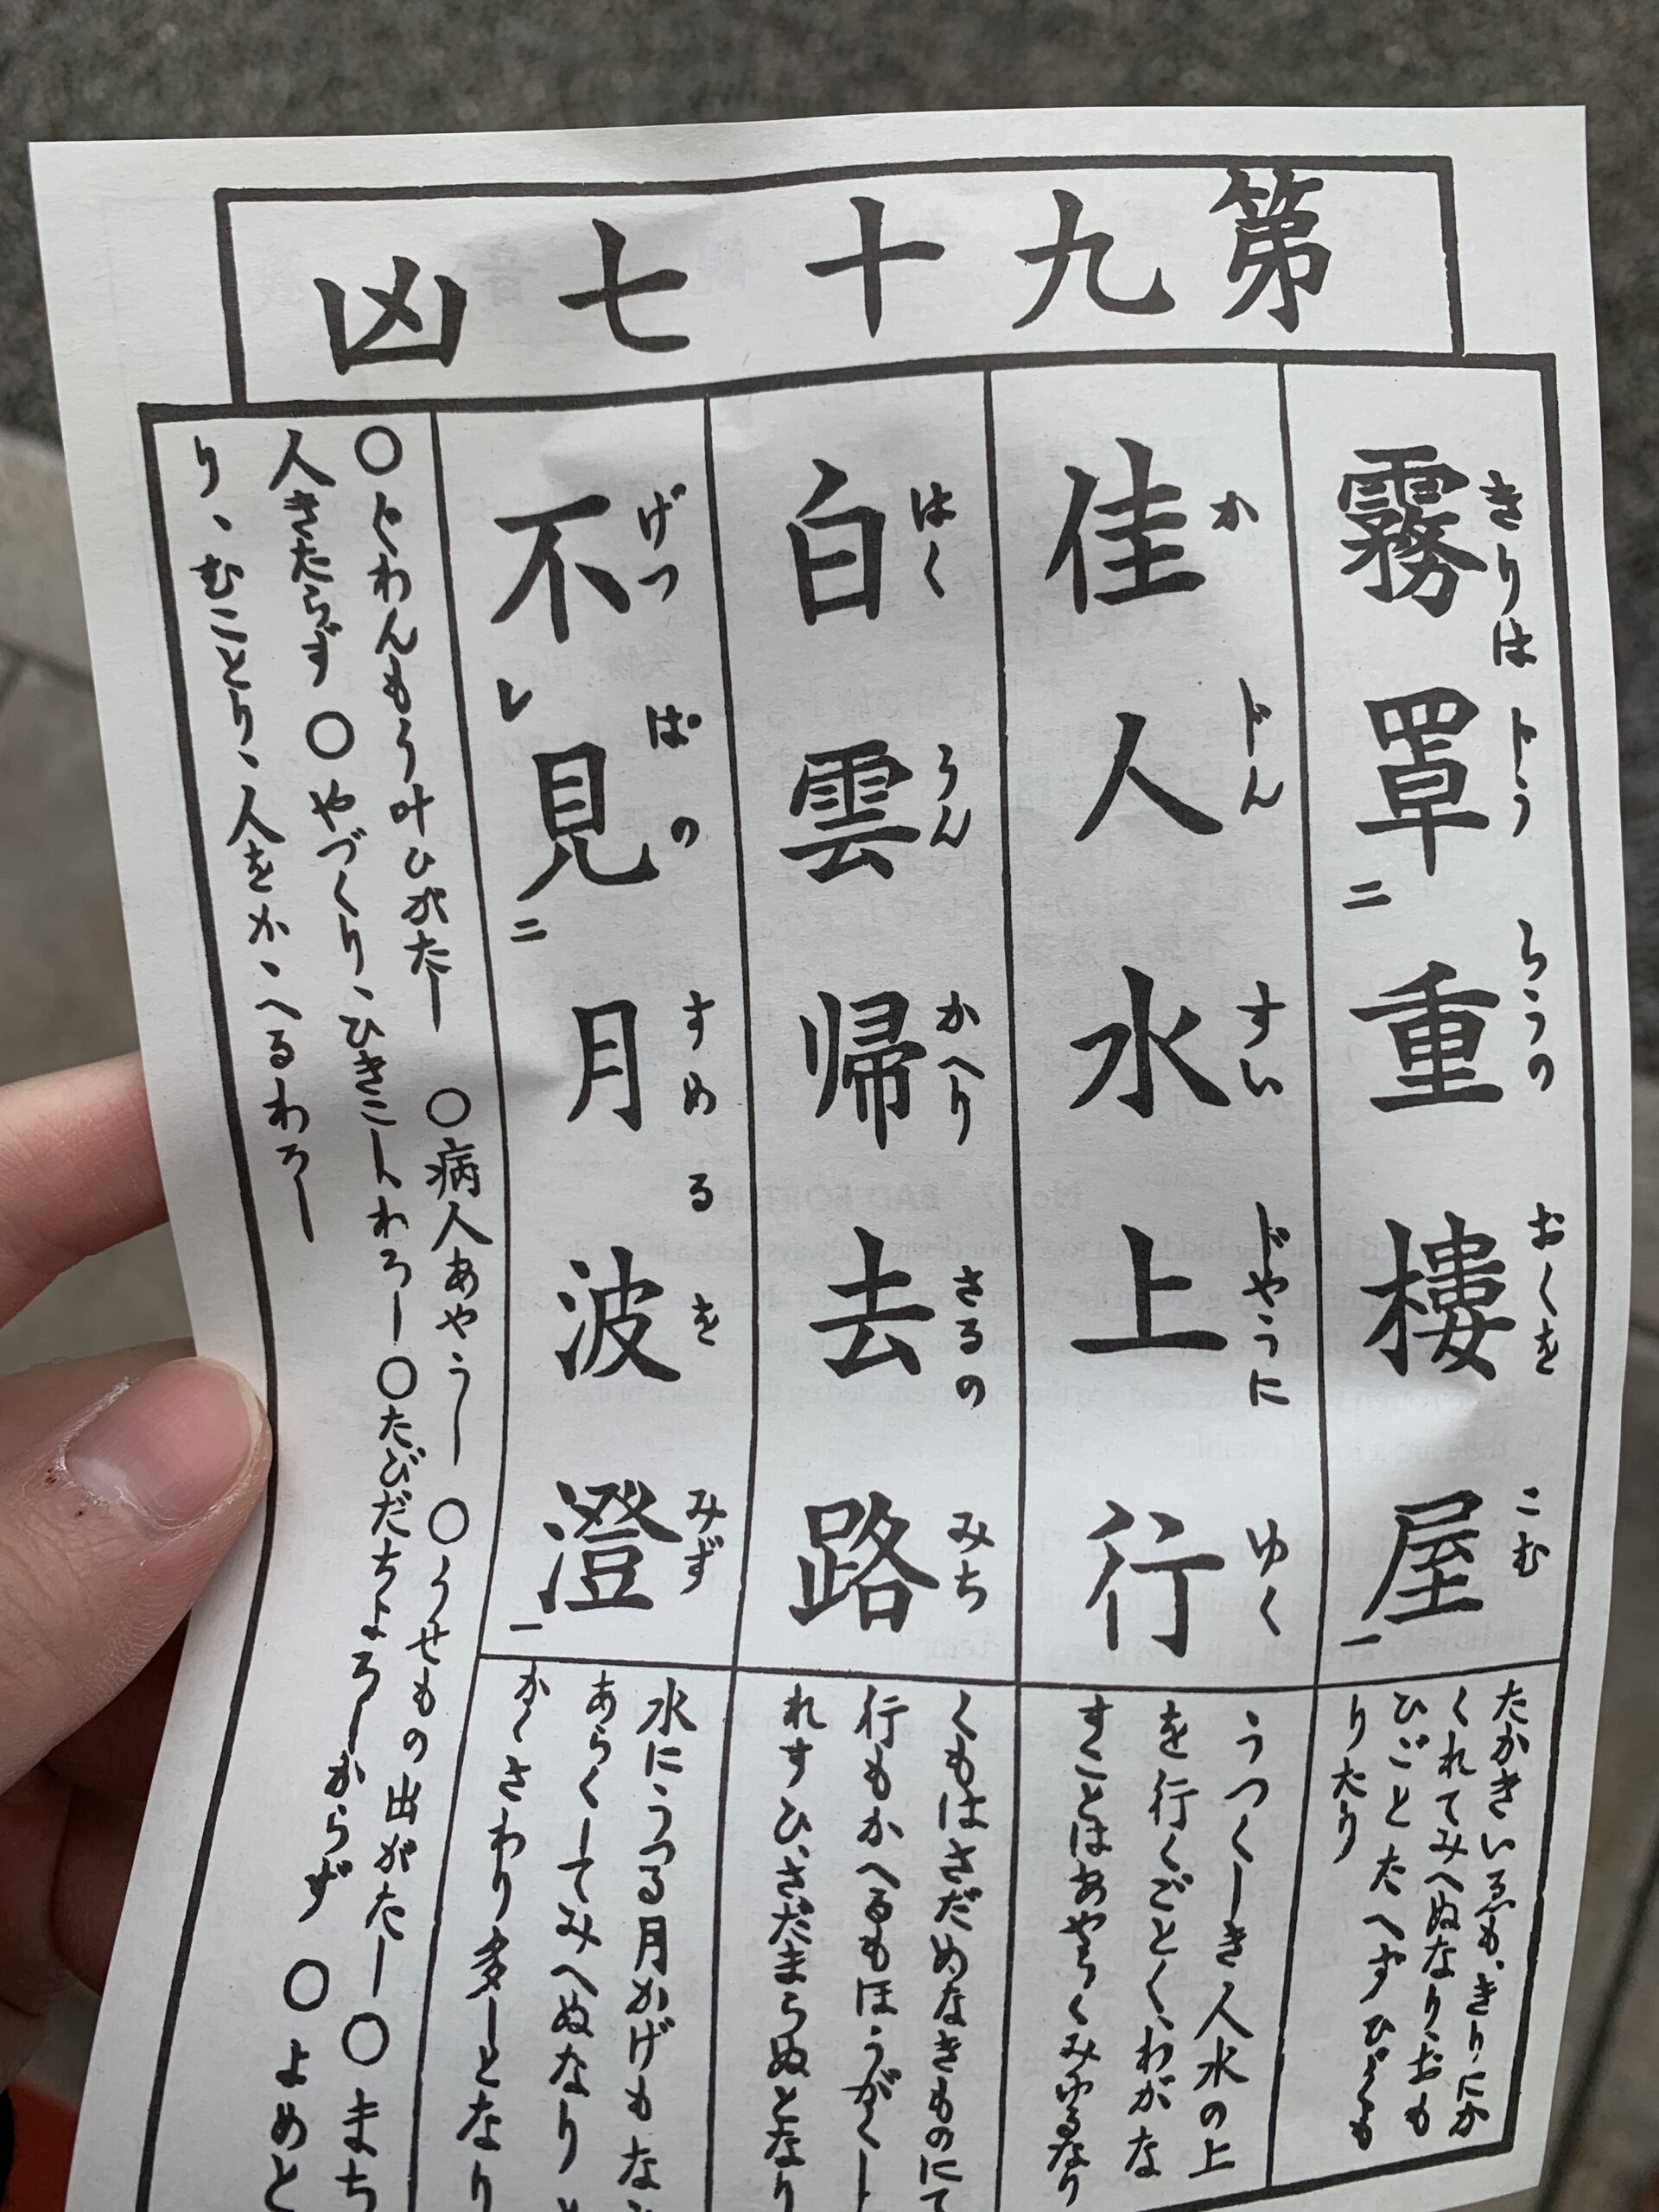 第九十七凶
きりは トう らうの おくを こむ
霧罩二重樓屋一
か ドん すい ドやうに ゆく
佳人水上行
はく うん かへり さるの みち
白雲帰去路
げつ ぱの すめるを みず
不レ見二月波澄一
たかきいゑも、きりにか
くれてみへぬなり、おも
ひごとたへずひさしも
りたり
うつくしき人水の上
を行くごとく、わがな
すことはあやうくみゆるなり
くもはさだめなきものにて
行もかへるもほうがくし
れずひ、さだまらぬとなり
水にうつる月かげもな
あらくしてみへぬなりと
かくさわり多しとなり
○ドわんもう叶ひがたし ○病人あやうし ○うせもの出がたし ○まち
人きたらず ○やづくり、ひきこしわろし ○たびだちよろしからず ○よめと
り、むことり、人をかゝへるわろし